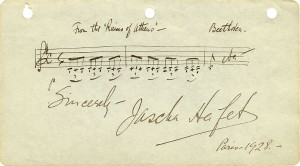 From the "Ruins of Athens" — Beethoven.
Sincerely —
Jascha Heifetz
Paris - 1928.